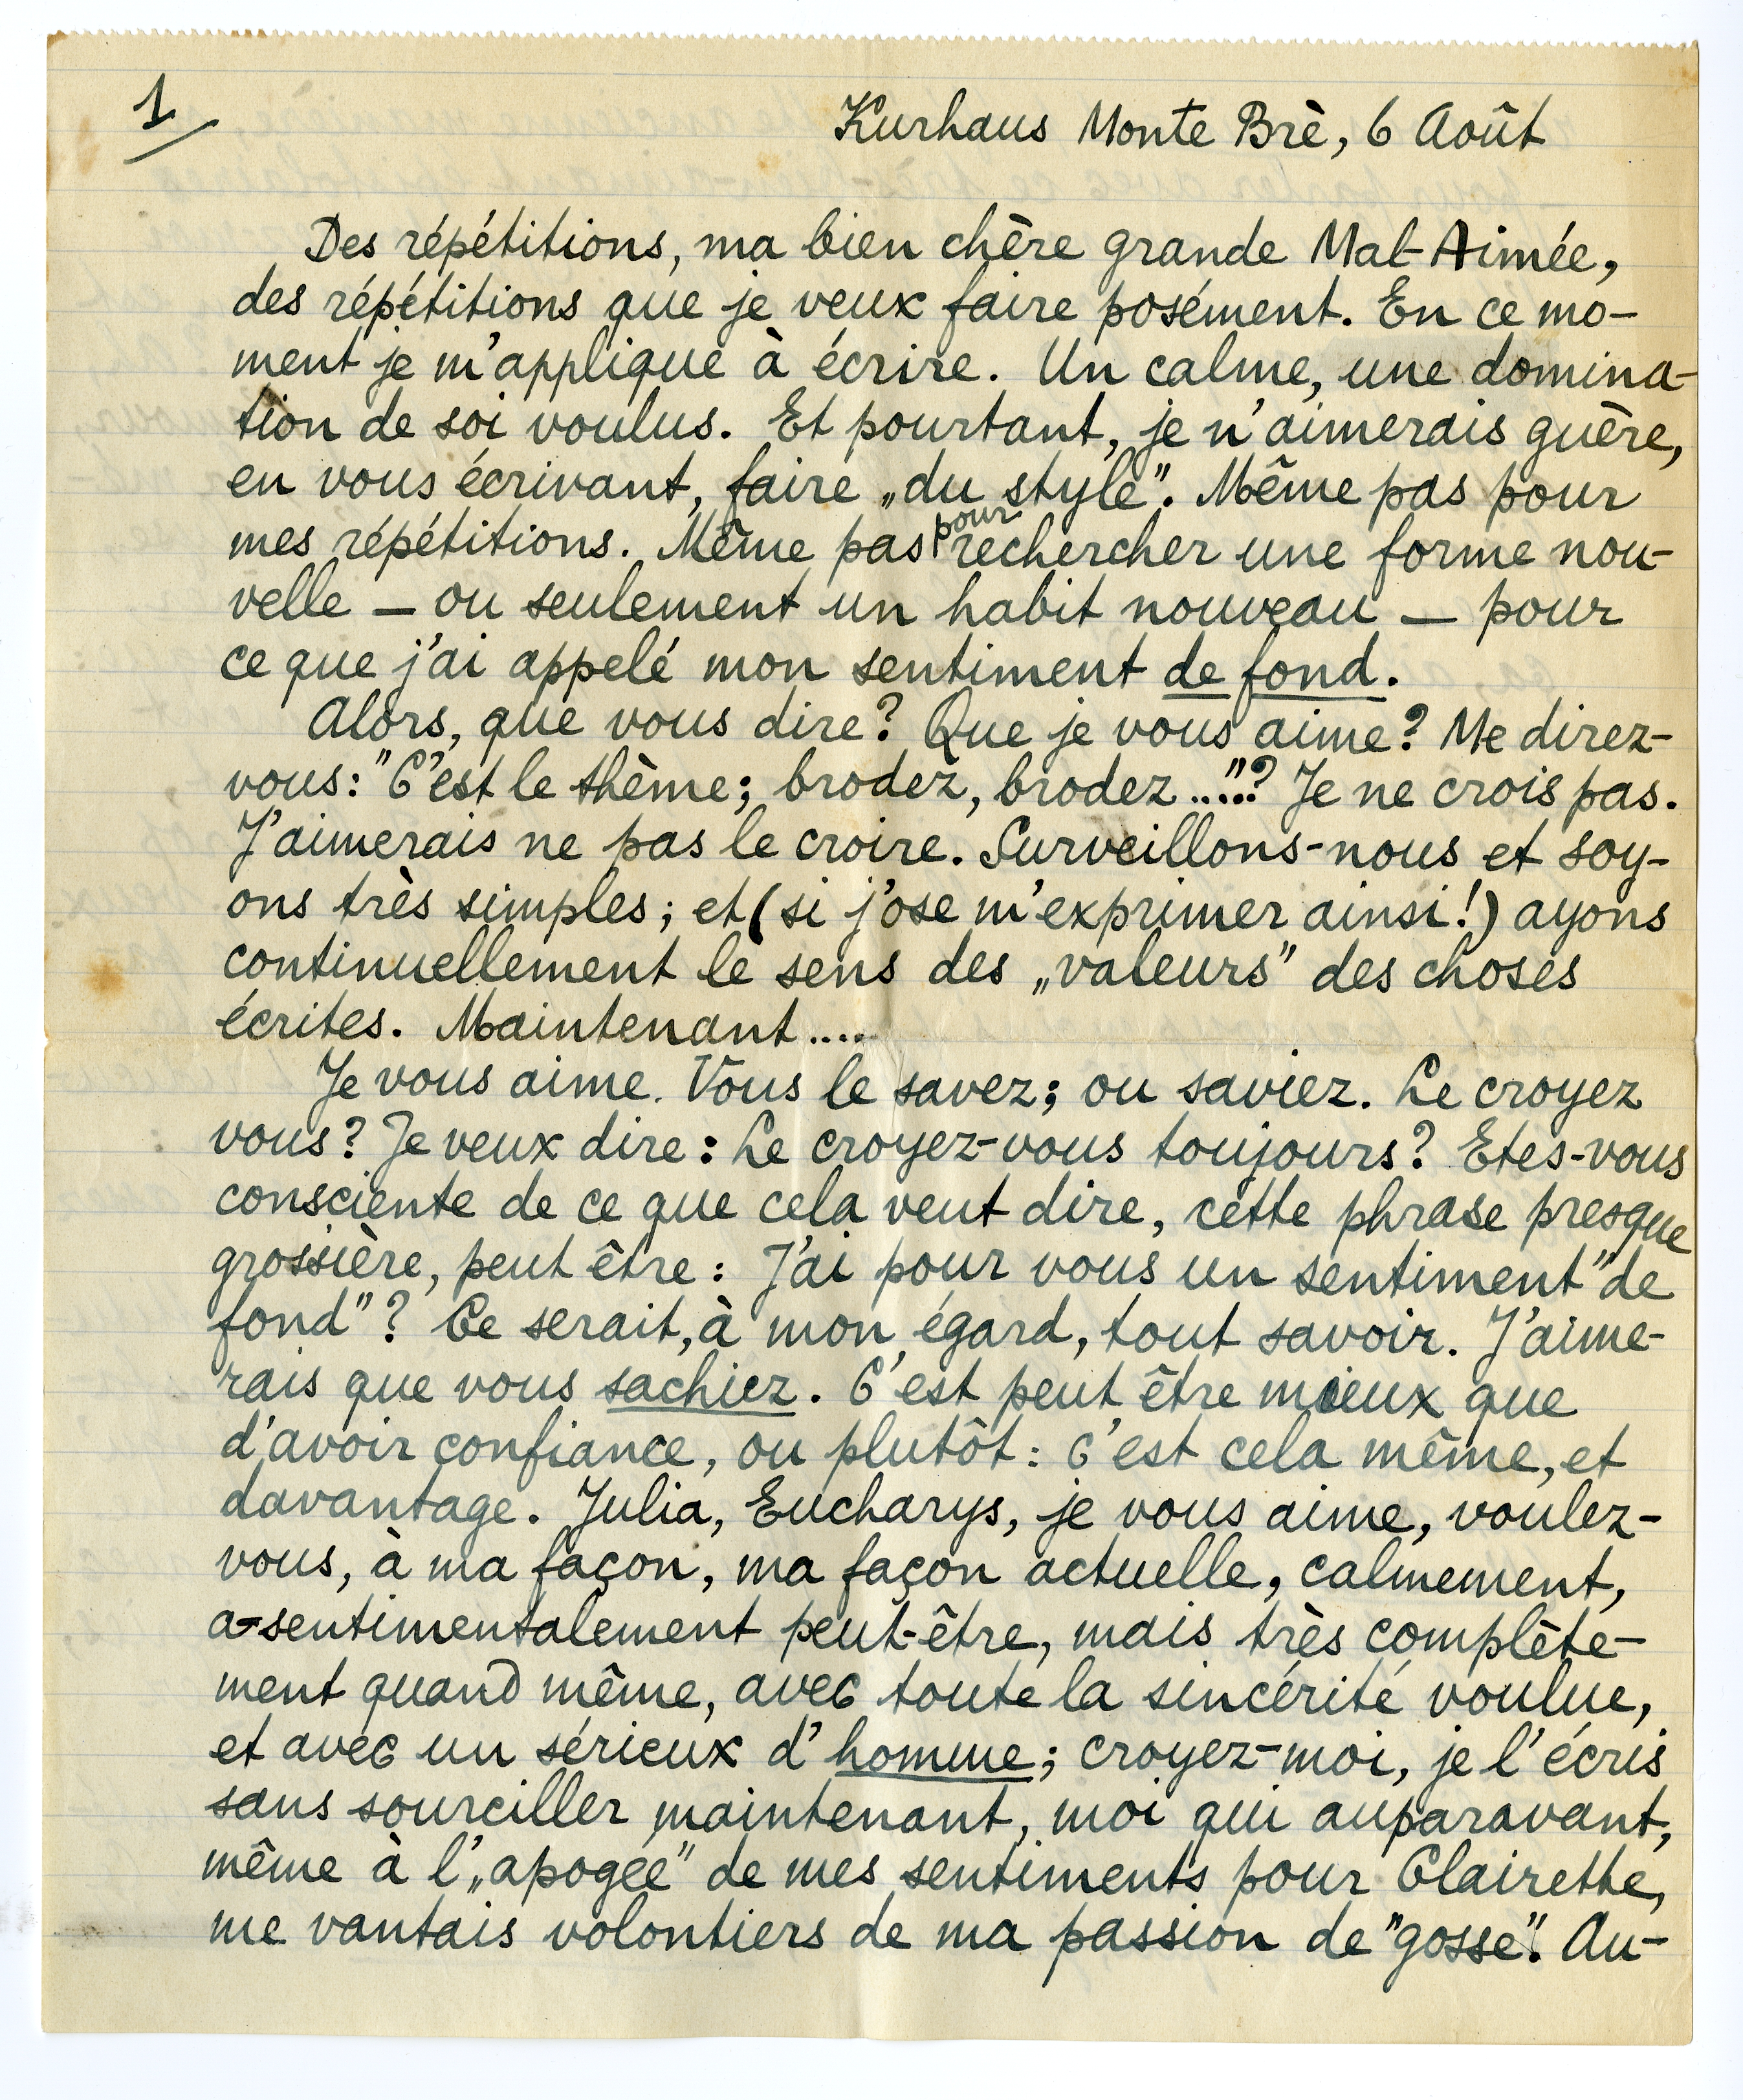 1
Kurhaus Monte Brè, 6 Août
Des répétitions, ma bien chère grande Mal-Aimée,
des répétitions que je veux faire posément. En ce mo-
ment je m'applique à écrire. Un calme, une domina-
tion de soi voulus. Et pourtant, je n'aimerais guère,
en vous écrivant, faire „du style". Même pas pour
mes répétitions. Même pas pour rechercher une forme nou-
velle — ou seulement un habit nouveau — pour
ce que j'ai appelé mon sentiment de fond.
Alors, que vous dire? Que je vous aime? Me direz-
vous: "C'est le thème; brodez, brodez....."? Je ne crois pas.
J'aimerais ne pas le croire. Surveillons-nous et soy-
ons très simples; et (si j'ose m'exprimer ainsi!) ayons
continuellement le sens des „valeurs" des choses
écrites. Maintenant.....
Je vous aime. Vous le savez; ou saviez. Le croyez
vous? Je veux dire: Le croyez-vous toujours? Etes-vous
consciente de ce que cela veut dire, cette phrase presque
grossière, peut être: J'ai pour vous un sentiment "de
fond"? Ce serait, à mon égard, tout savoir. J'aime-
rais que vous sachiez. C'est peut être mieux que
d'avoir confiance, ou plutôt: c'est cela même, et
davantage. Julia, Eucharys, je vous aime, voulez-
vous, à ma façon, ma façon actuelle, calmement,
a-sentimentalement peut-être, mais très complète-
ment quand même, avec toute la sincérité voulue,
et avec un sérieux d'homme; croyez-moi, je l'écris
sans sourciller maintenant, moi qui auparavant,
même à l'„apogée" de mes sentiments pour Clairette,
me vantais volontiers de ma passion de "gosse". Au-